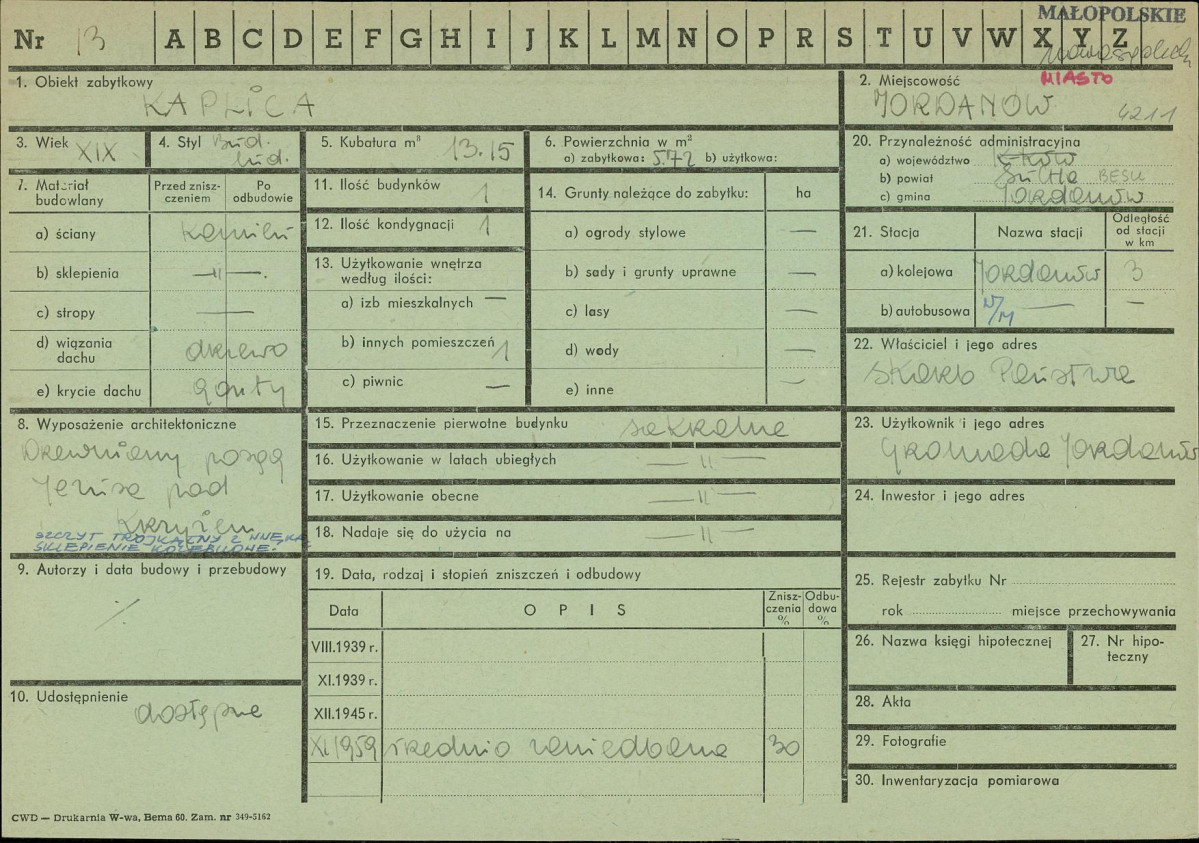 Nr 13 A B C D E F G H I J K L M N O P R S T U V W X Y Z
MAŁOPOLSKIE
nowosądeck
1. Obiekt zabytkowy
KAPLICA
2. Miejscowość MIASTO
JORDANÓW 4211
3. Wiek XIX
4. Styl Bud. lud.
5. Kubatura m³ 13.15
6. Powierzchnia w m²
a) zabytkowa: 5.72 b) użytkowa:
7. Materiał budowlany
Przed zniszczeniem
Po odbudowie
a) ściany kamień
b) sklepienia —"—.
c) stropy —
d) wiązania dachu drzewo
e) krycie dachu gonty
11. Ilość budynków 1
12. Ilość kondygnacji 1
13. Użytkowanie wnętrza według ilości:
a) izb mieszkalnych —
b) innych pomieszczeń 1
c) piwnic —
14. Grunty należące do zabytku: ha
a) ogrody stylowe —
b) sady i grunty uprawne —
c) lasy —
d) wody —
e) inne —
20. Przynależność administracyjna
a) województwo Kraków
b) powiat Sucha BESK
c) gmina Jordanów
21. Stacja
Nazwa stacji
Odległość od stacji w km
a) kolejowa Jordanów 3
b) autobusowa N/M — —
22. Właściciel i jego adres
Skarb Państwa
8. Wyposażenie architektoniczne
Drewniany posąg
Jezusa pod
Krzyżem
SZCZYT TRÓJKĄTNY Z WNĘKĄ
SKLEPIENIE KOLEBKOWE.
15. Przeznaczenie pierwotne budynku sakralne
16. Użytkowanie w latach ubiegłych —"—
17. Użytkowanie obecne —"—
18. Nadaje się do użycia na —"—
23. Użytkownik i jego adres
Gromada Jordanów
24. Inwestor i jego adres
9. Autorzy i data budowy i przebudowy
·/·
19. Data, rodzaj i stopień zniszczeń i odbudowy
Data
OPIS
Zniszczenia %
Odbudowa %
VIII.1939 r.
XI.1939 r.
XII.1945 r.
XI/1959 średnio zaniedbana 30
25. Rejestr zabytku Nr
rok miejsce przechowywania
26. Nazwa księgi hipotecznej
27. Nr hipoteczny
10. Udostępnienie
dostępne
28. Akta
29. Fotografie
30. Inwentaryzacja pomiarowa
CWD — Drukarnia W-wa, Bema 60. Zam. nr 349-5162